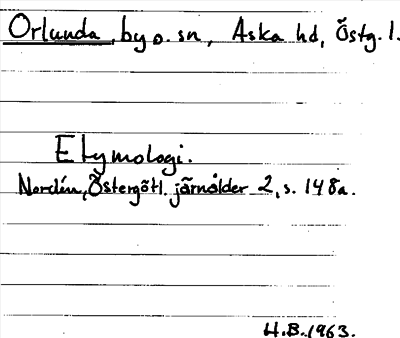 Orlunda, by o. sn, Aska hd, Östg. l.
Etymologi.
Nordén, Östergötl. järnålder 2, s. 148a.
H.B. 1963.